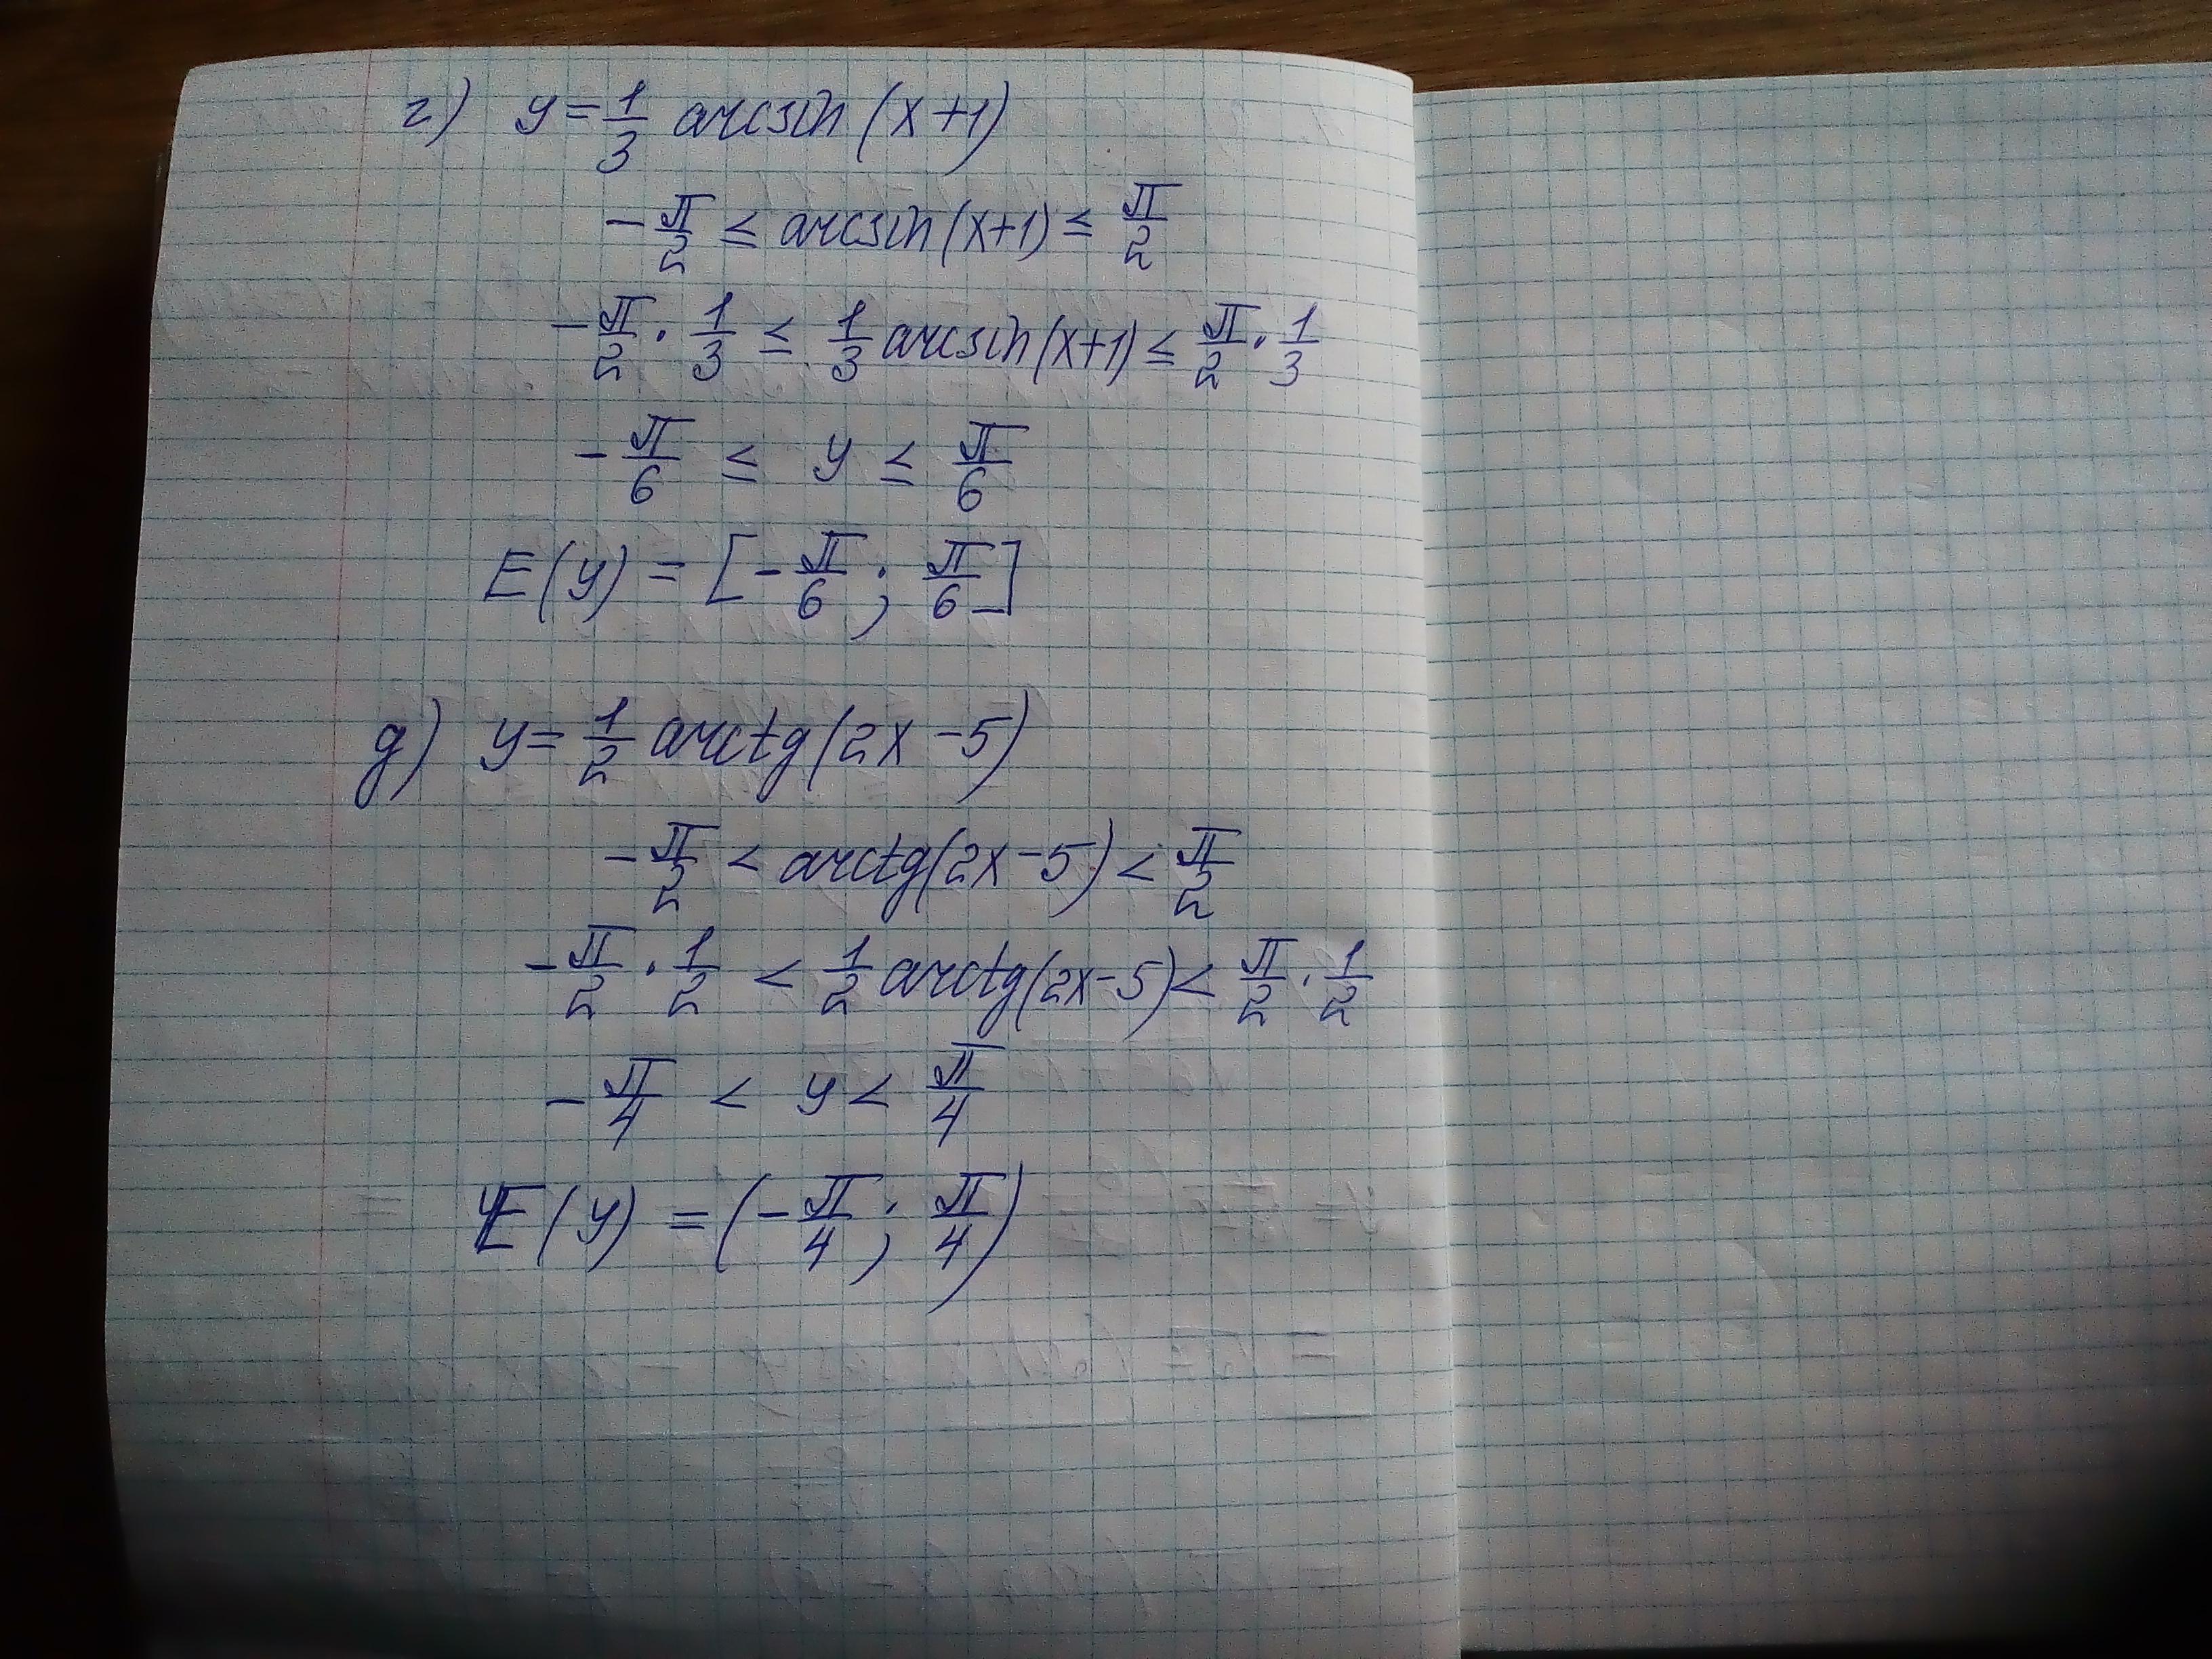 г) y = 1/3 arcsin (x+1)
-π/2 ≤ arcsin(x+1) ≤ π/2
-π/2 · 1/3 ≤ 1/3 arcsin(x+1) ≤ π/2 · 1/3
-π/6 ≤ y ≤ π/6
E(y) = [-π/6 ; π/6]
д) y = 1/2 arctg(2x-5)
-π/2 < arctg(2x-5) < π/2
-π/2 · 1/2 < 1/2 arctg(2x-5) < π/2 · 1/2
-π/4 < y < π/4
E(y) = (-π/4 ; π/4)